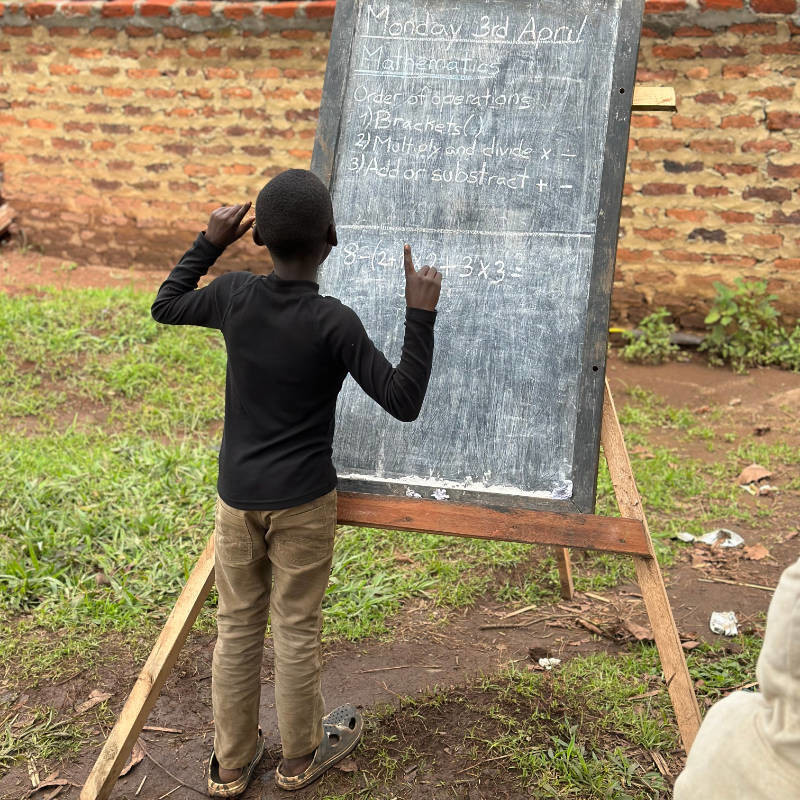 Monday 3rd April
Mathematics
Order of operations
1) Brackets ( )
2) Multiply and divide x –
3) Add or substract + -
3x3=